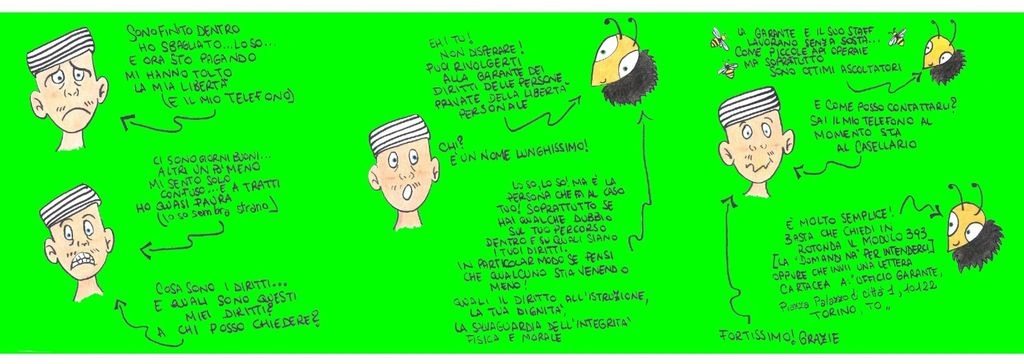 SONO FINITO DENTRO
HO SBAGLIATO... LO SO...
E ORA STO PAGANDO
MI HANNO TOLTO
LA MIA LIBERTA'
(E IL MIO TELEFONO)
CI SONO GIORNI BUONI...
ALTRI UN PO' MENO
MI SENTO SOLO
CONFUSO... E A TRATTI
HO QUASI PAURA
(lo so sembra strano)
COSA SONO I DIRITTI...
E QUALI SONO QUESTI
MIEI DIRITTI?
A CHI POSSO CHIEDERE?
EHI TU!
NON DISPERARE!
PUOI RIVOLGERTI
ALLA GARANTE DEI
DIRITTI DELLE PERSONE
PRIVATE DELLA LIBERTA'
PERSONALE
CHI?
E' UN NOME LUNGHISSIMO!
LO SO, LO SO! MA E' LA
PERSONA CHE FA AL CASO
TUO! SOPRATTUTTO SE
HAI QUALCHE DUBBIO
SUL TUO PERCORSO
DENTRO E SU QUALI SIANO
I TUOI DIRITTI.
IN PARTICOLAR MODO SE PENSI
CHE QUALCUNO STIA VENENDO
MENO!
QUALI IL DIRITTO ALL'ISTRUZIONE,
LA TUA DIGNITA',
LA SALVAGUARDIA DELL'INTEGRITA'
FISICA E MORALE
LA GARANTE E IL SUO STAFF
LAVORANO SENZA SOSTA...
COME PICCOLE API OPERAIE
MA SOPRATUTTO
SONO OTTIMI ASCOLTATORI
E COME POSSO CONTATTARLI?
SAI IL MIO TELEFONO AL
MOMENTO STA
AL CASELLARIO
E' MOLTO SEMPLICE!
BASTA CHE CHIEDI IN
ROTONDA IL MODULO 393
[LA "DOMANDINA" PER INTENDERCI]
OPPURE CHE INVII UNA LETTERA
CARTACEA A: "UFFICIO GARANTE,
Piazza Palazzo di Città 1, 10122
TORINO, TO"
FORTISSIMO! GRAZIE